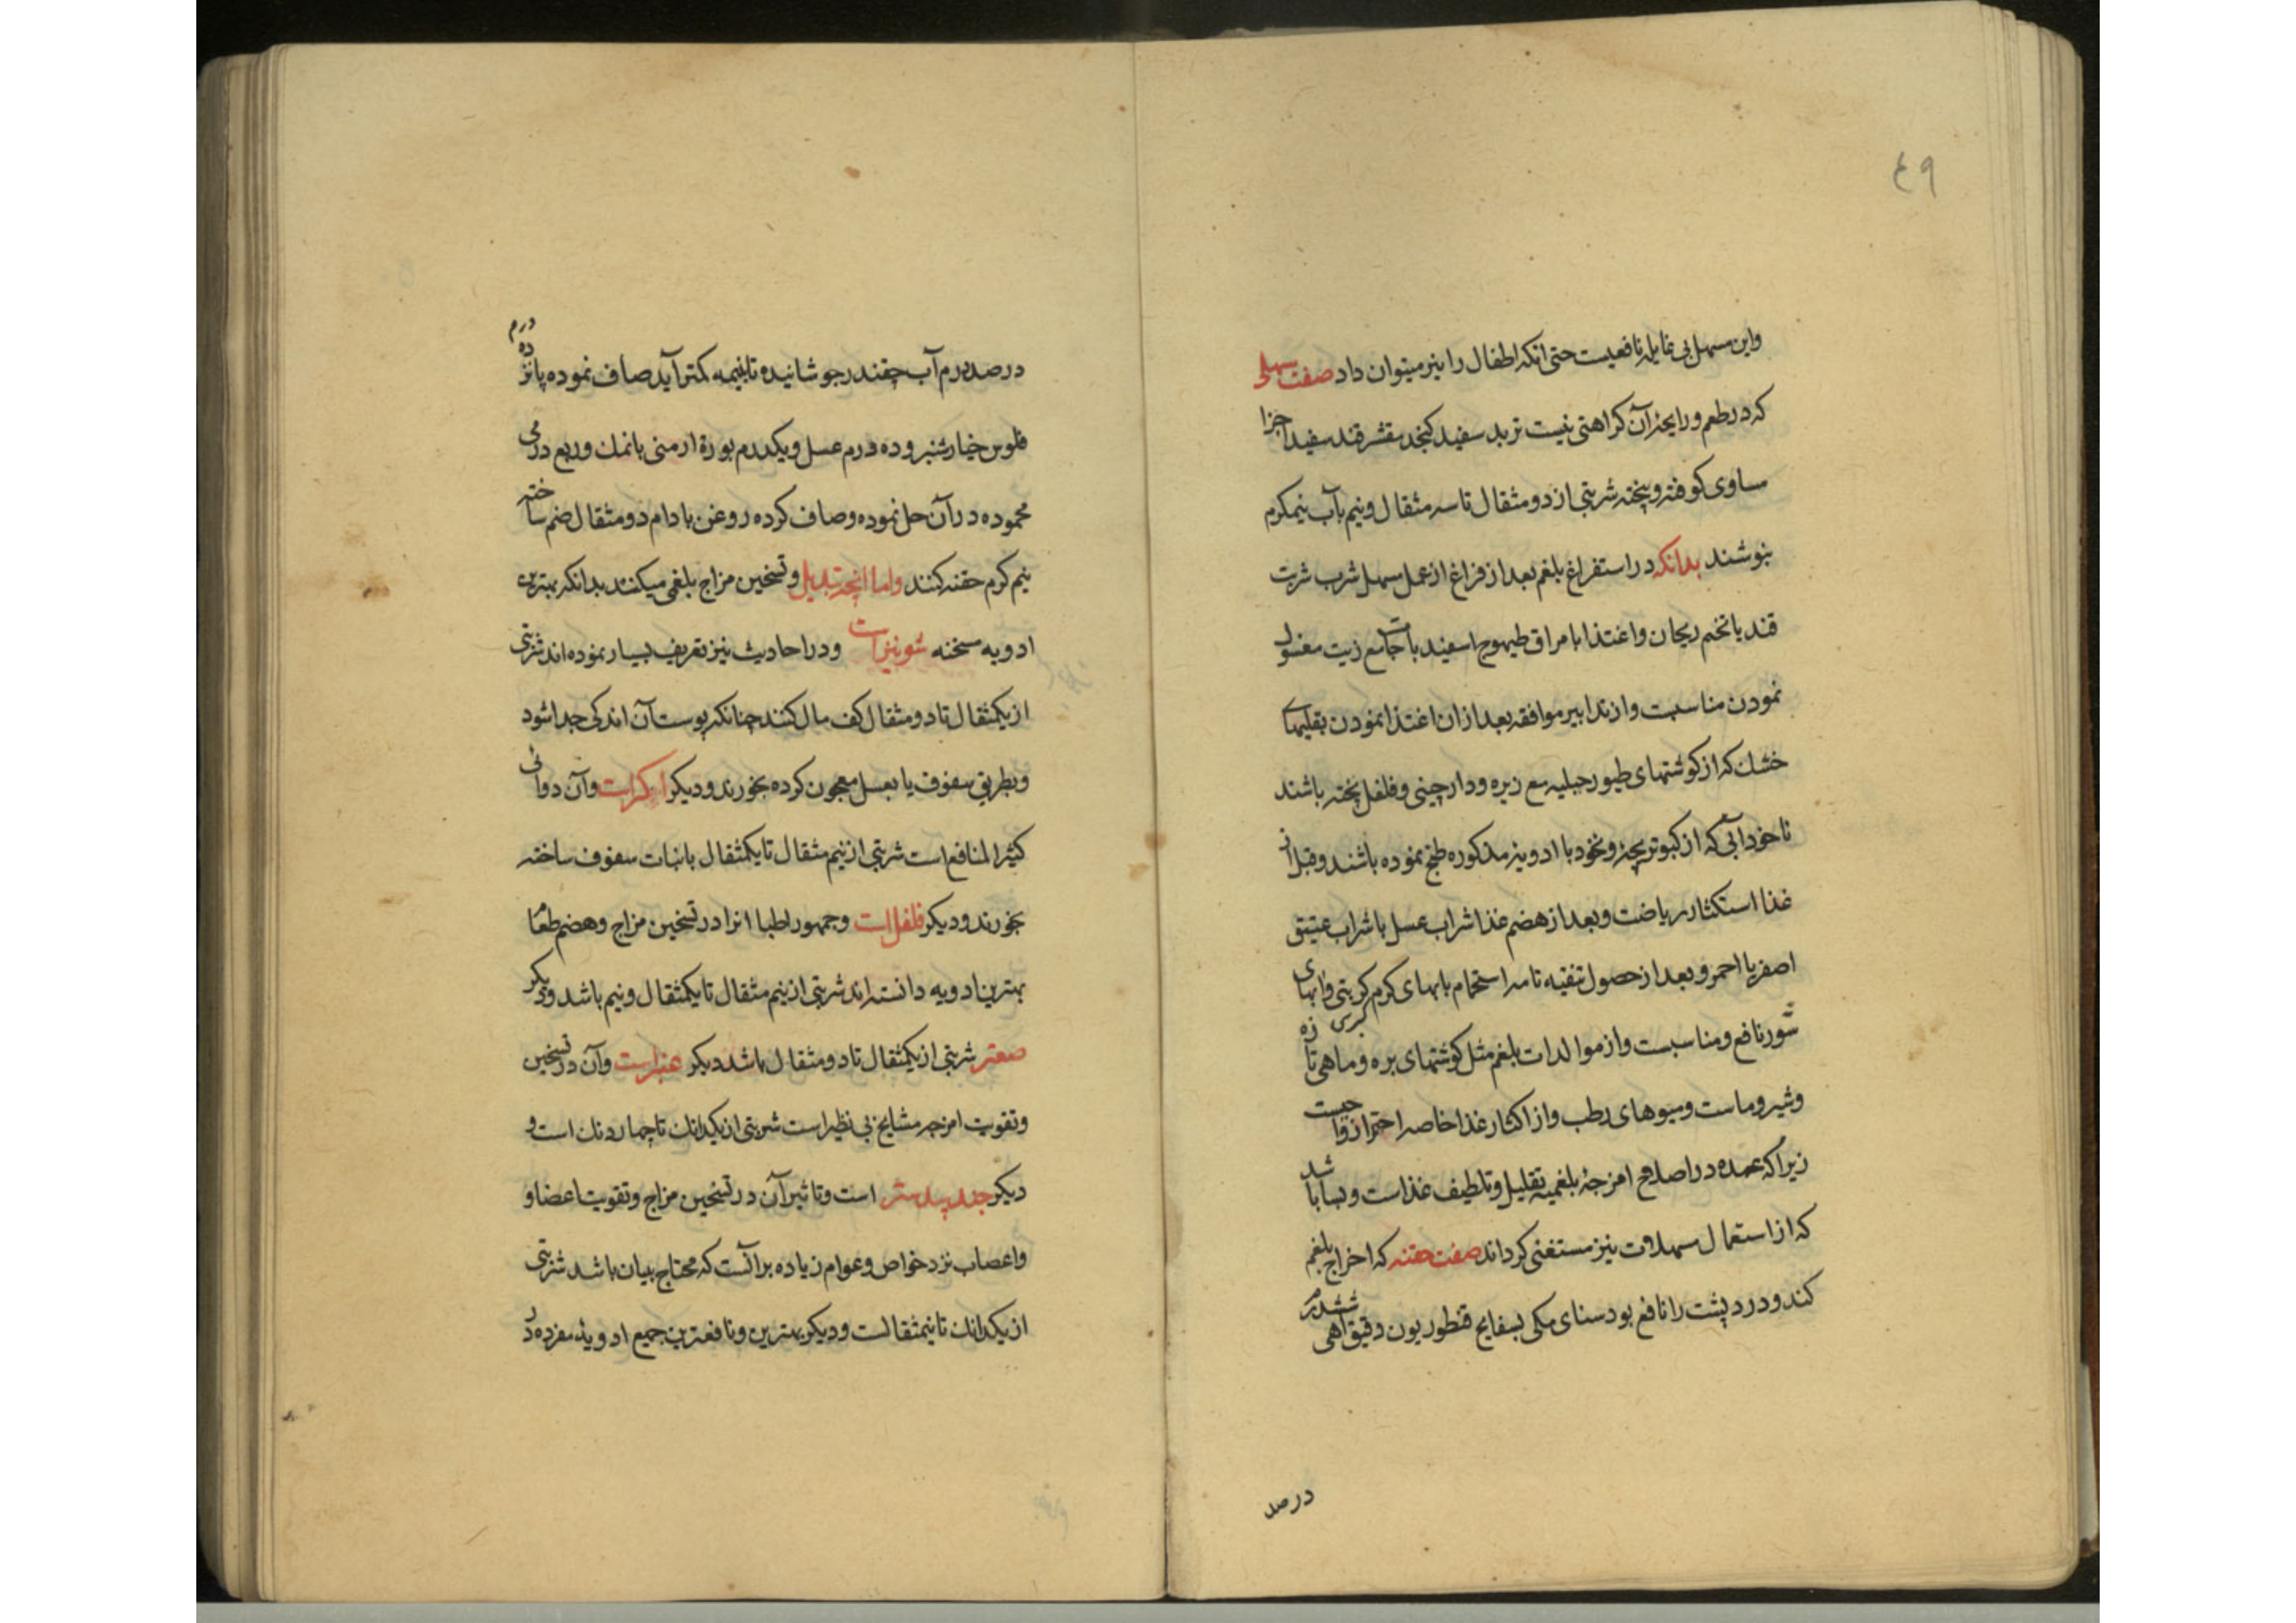 ۴۹
واین مسهل بی غایله نافعیست حتی انکه اطفال را نیز میتوان داد صفت مسهلی
که در طعم و رایحهٔ آن کراهتی نیست تربد سفید کنجد مقشر قند سفید اجزا
مساوی کوفته و بیخته شربتی از دو مثقال تا سه مثقال و نیم بآب نیمکرم
بنوشند بدانکه در استفراغ بلغم بعد از فراغ از عمل مسهل شرب شربت
قند با تخم ریحان و اغتذا بامراق طیهوج اسفید باجات مع زیت مغسول
نمودن مناسبست و از تدابیر موافقه بعد از ان اغتذا نمودن بقلیهای
خشك که از کوشتهای طیور جبلیه مع زیره و دارچینی و فلفل پخته باشند
ناخودآبی که از کبوتر بچه و نخود با ادویه مذکوره طبخ نموده باشند و قبل از
غذا استکثار ریاضت و بعد از هضم غذا شراب عسل با شراب عتیق
اصفر یا احمر و بعد از حصول تنقیه تامه استحمام بابهای کرم کبریتی و ابهای
شور نافع و مناسبست و از موالدات بلغم مثل کوشتهای بره و ماهی تازه
و شیر و ماست و میوهای رطب و از اکثار غذا خاصه احتراز واجبست
زیرا که عمده در اصلاح امزجهٔ بلغمیه تقلیل و تلطیف غذاست و بسا باشد
که از استعمال مسهلات نیز مستغنی کرداند صفت حقنه که اخراج بلغم
کند و درد پشت را نافع بود سنای مکی بسفایج قنطوریون دقیق اهی ششدرم
در صد
در صد درم آب چقندر جوشانیده تا بنیمه کمتر آید صاف نموده پانزده درم
فلوس خیارشنبر و ده درم عسل و یکدرم بورهٔ ارمنی با نمك و ربع درمی
محموده در آن حل نموده و صاف کرده روغن بادام دو مثقال ضم ساخته
نیم کرم حقنه کنند و اما انچه تبدیل و تسخین مزاج بلغمی میکنند بدانکه بهترین
ادویه مسخنه شونیز است و در احادیث نیز تعریف بسیار نموده اند شربتی
از یکمثقال تا دو مثقال کف مال کنند چنانکه پوست آن اندکی جدا شود
و بطریق سفوف یا بعسل معجون کرده بخورند و دیکر اکر است و آن دوائی
کثیر المنافع است شربتی از نیم مثقال تا یکمثقال با نبات سفوف ساخته
بخورند و دیکر فلفل است و جمهور اطبا انرا در تسخین مزاج و هضم طعام
بهترین ادویه دانسته اند شربتی از نیم مثقال تا یکمثقال و نیم باشد و دیکر
صعتر شربتی از یکمثقال تا دو مثقال باشد دیکر عنبر است و آن در تسخین
و تقویت امزجه مشایخ بی نظیر است شربتی از یکدانك تا چهار دنك است و
دیکر جند بیدستر است و تاثیر آن در تسخین مزاج و تقویت اعضا و
و اعصاب نزد خواص و عوام زیاده بر آنست که محتاج بیان باشد شربتی
از یکدانك تا نیمثقالست و دیکر بهترین و نافعترین جمیع ادویهٔ مفرده در